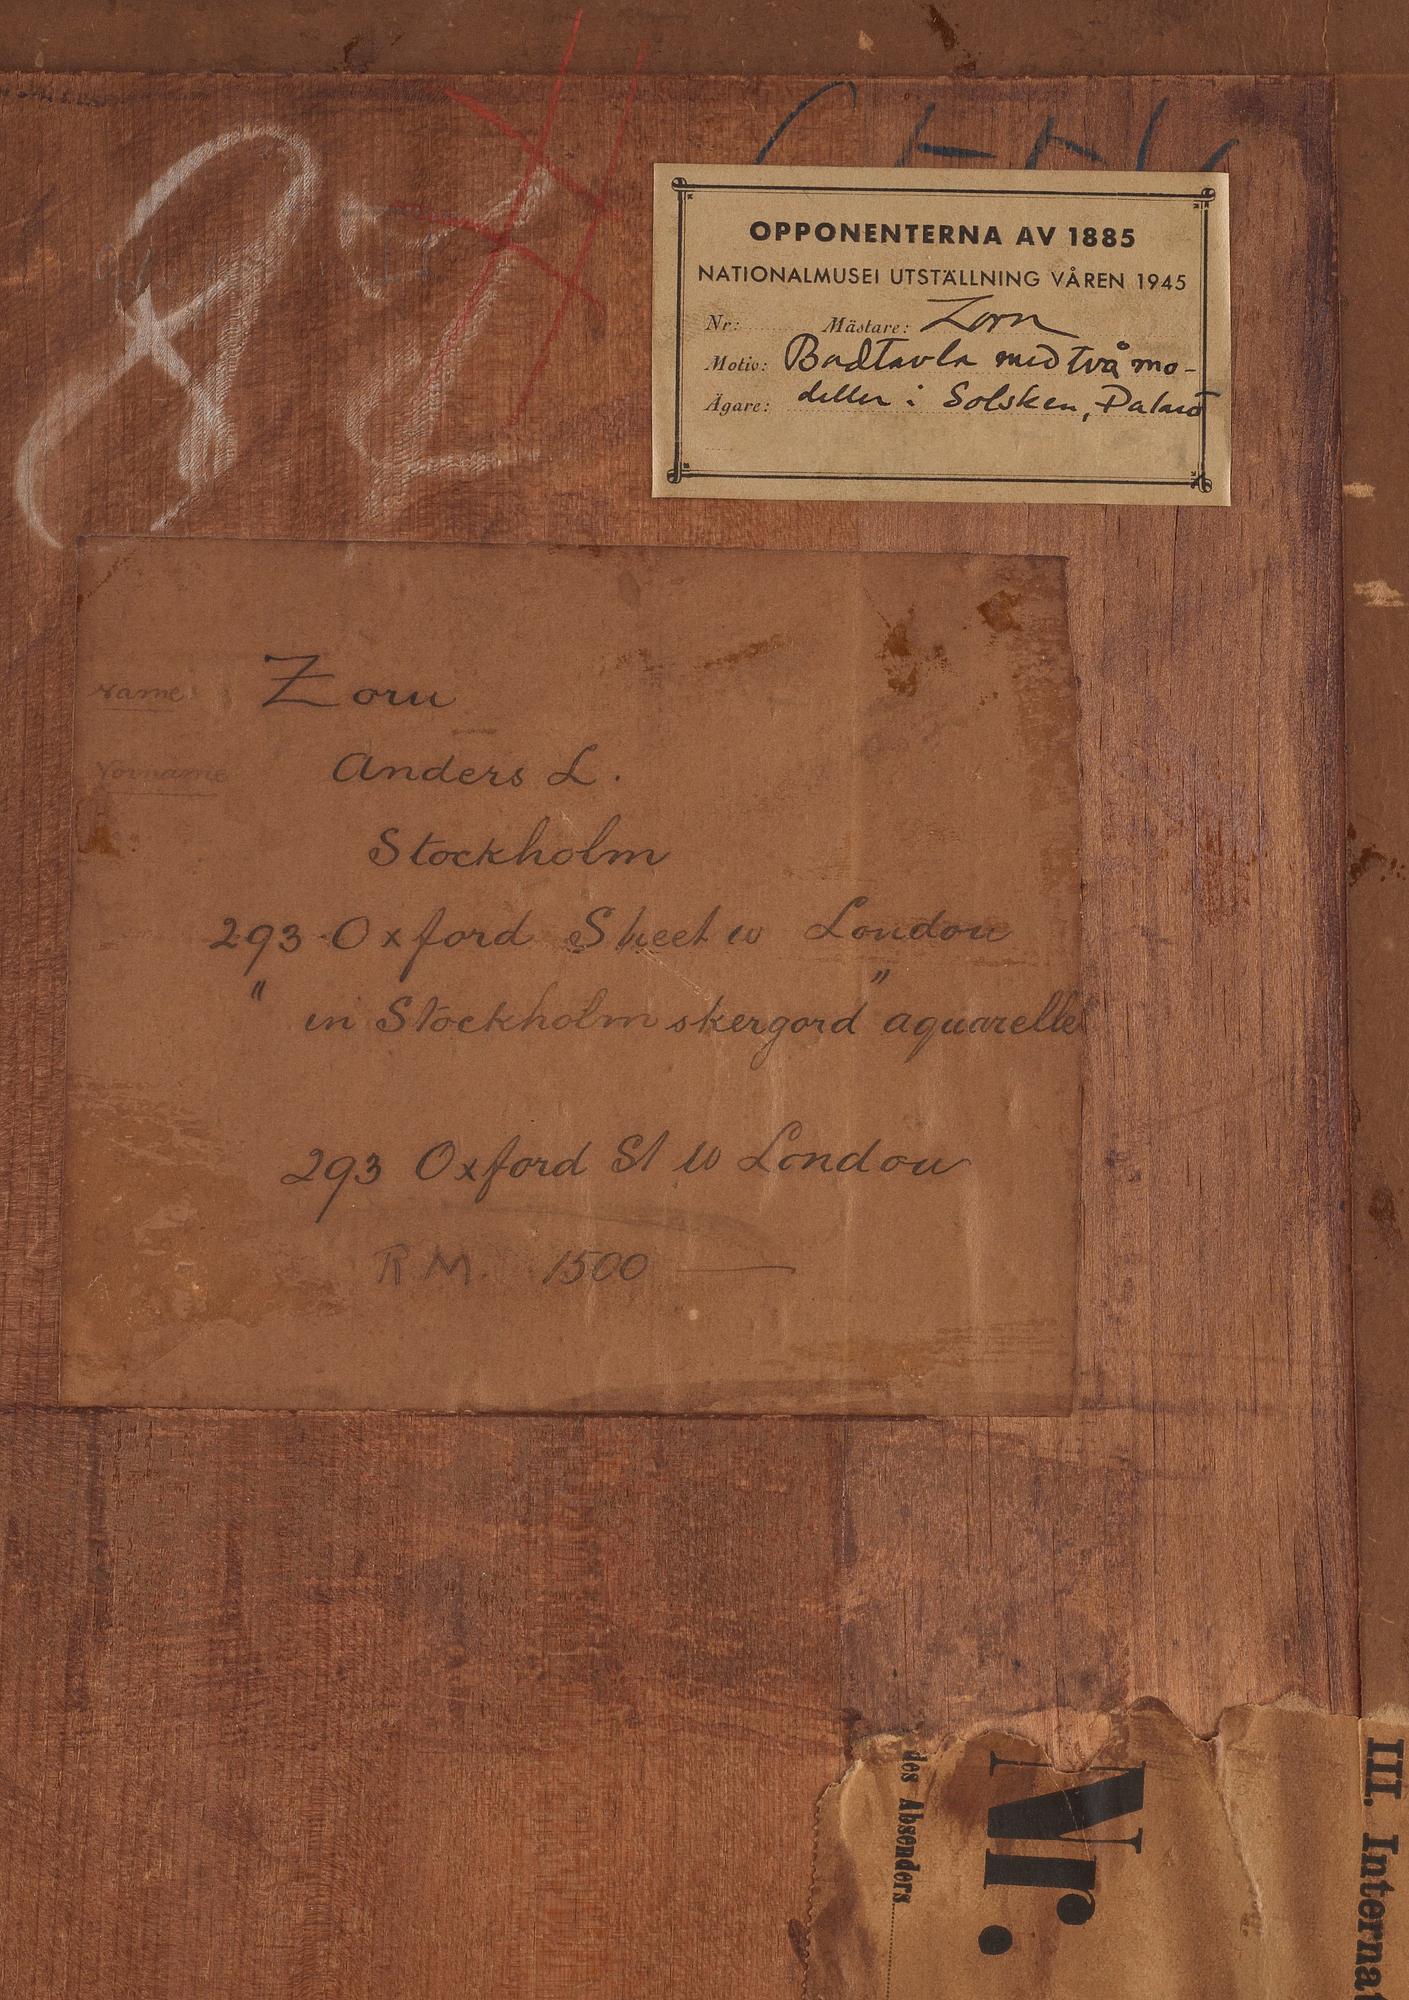 OPPONENTERNA AV 1885
NATIONALMUSEI UTSTÄLLNING VÅREN 1945
Nr: Mästare: Zorn
Motiv: Badtavla med två mo-
Ägare: deller i Solsken, Dalarö
Name Zorn
Vorname Anders L.
Stockholm
293 Oxford Street W London
" in Stockholm skergord" aquarelle
293 Oxford St W London
R M. 1500
des Absenders
Nr.
III. Internat